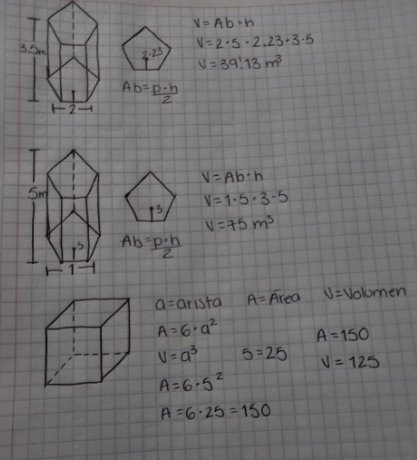 3.5m
2
2.23
Ab=p·h/2
V=Ab·h
V=2·5·2.23·3·5
V=39'13 m³
5m
3
1
3
Ab=p·h/2
V=Ab·h
V=1·5·3·5
V=75 m³
a=arista A=Área V=Volumen
A=6·a²
V=a³ 5=25
A=6·5²
A=6·25=150
A=150
V=125